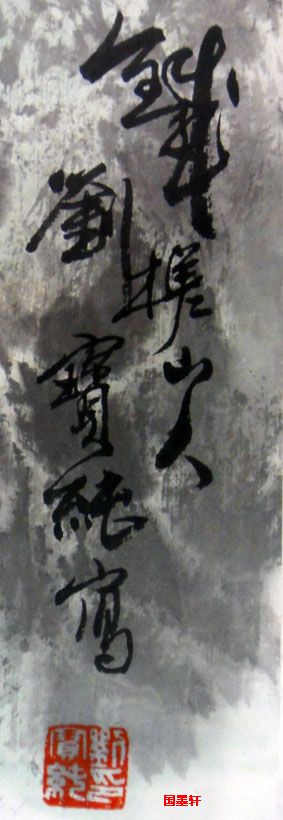 鐵槎山人
劉寶純寫
劉寶純印
国墨轩